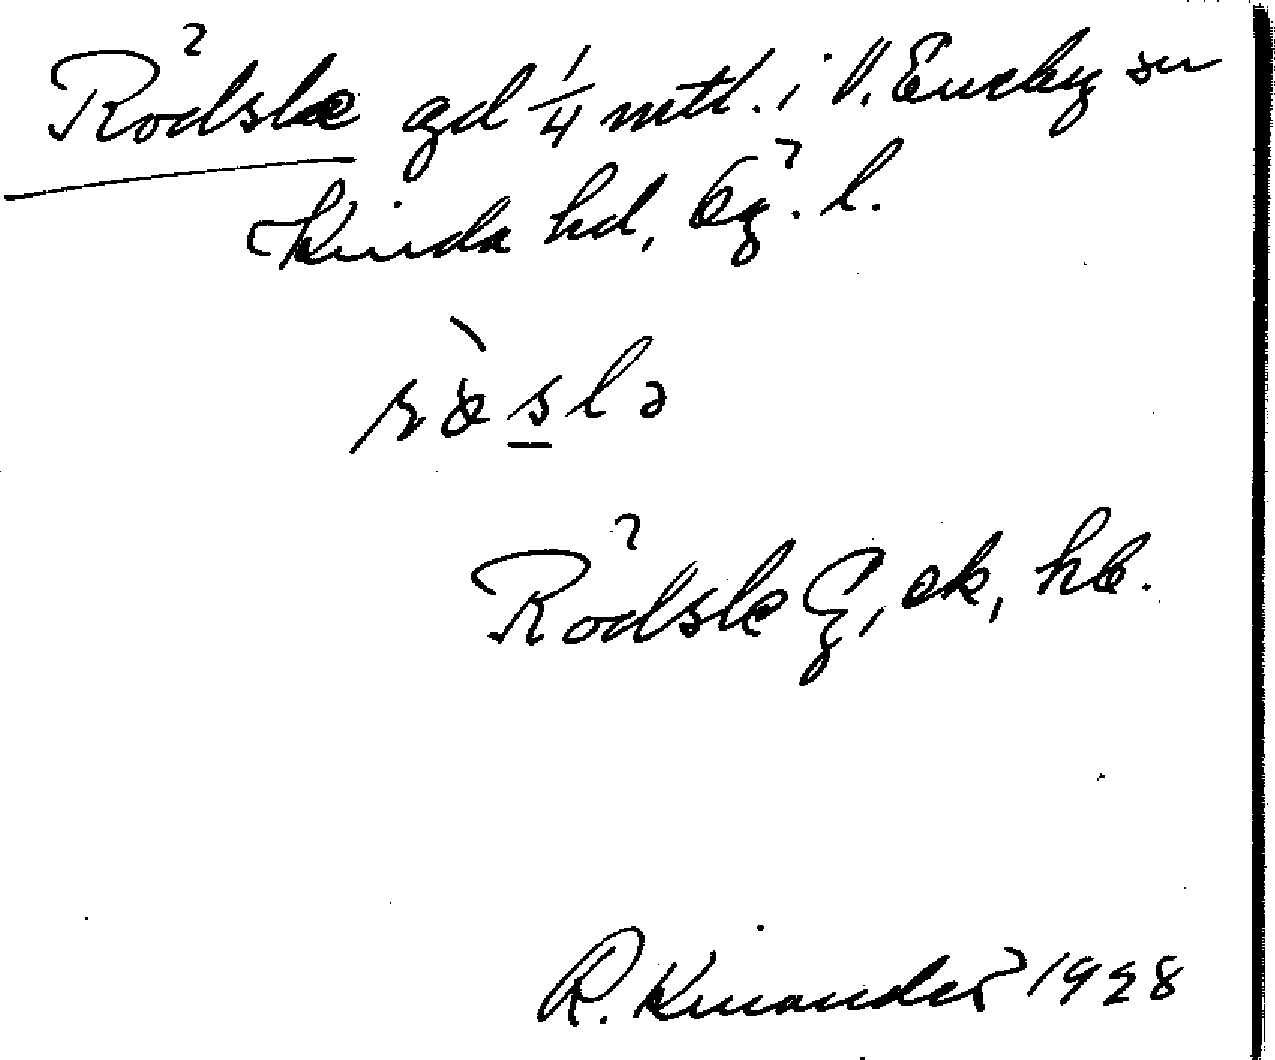 Rödsle gd 1/4 mtl. i V. Eneby sn
Kinda hd, Ög. l.
rö̀slə
Rödsle G, ek, hb.
R. Kinander 1928